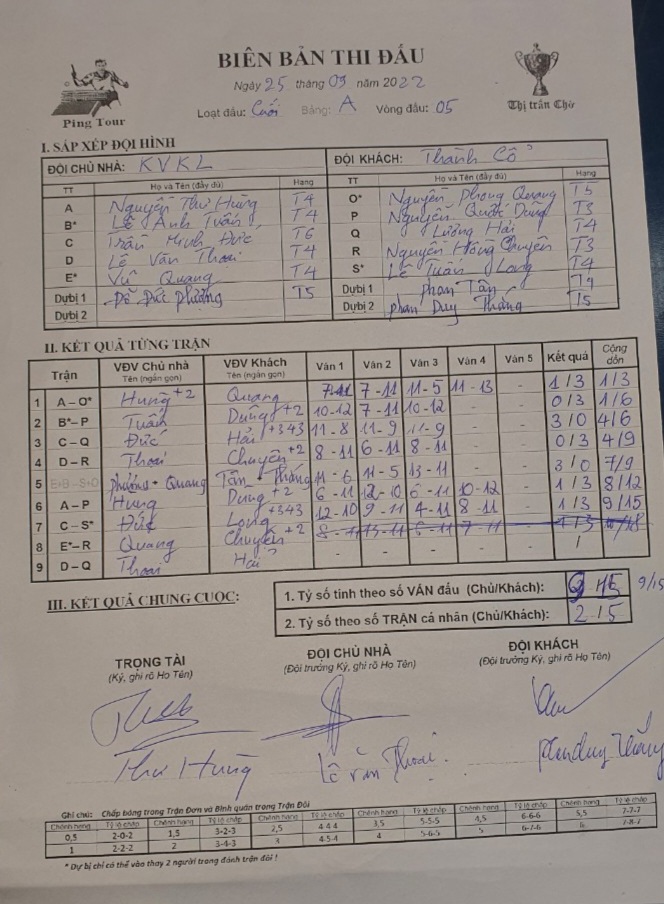 BIÊN BẢN THI ĐẤU
Ngày 25 tháng 09 năm 2022
Ping Tour
Loạt đấu: Cuối Bảng: A Vòng đấu: 05
Thị trấn Chờ
I. SẮP XẾP ĐỘI HÌNH
ĐỘI CHỦ NHÀ: KVKL ĐỘI KHÁCH: Thành Cổ
TT Họ và Tên (đầy đủ) Hạng TT Họ và Tên (đầy đủ) Hạng
A Nguyễn Thư Hùng T4 O* Nguyễn Phong Quang T5
B* Lê Anh Tuấn T4 P Nguyễn Quốc Dũng T3
C Trần Minh Đức T6 Q Lương Hải T4
D Lê Văn Thoai T4 R Nguyễn Hồng Chuyên T3
E* Vũ Quang T4 S* Lê Tuấn Long T4
Dự bị 1 Đỗ Đức Phương T5 Dự bị 1 Phan Tân T4
Dự bị 2 Dự bị 2 Phan Duy Thắng T5
II. KẾT QUẢ TỪNG TRẬN
Trận VĐV Chủ nhà Tên (ngắn gọn) VĐV Khách Tên (ngắn gọn) Ván 1 Ván 2 Ván 3 Ván 4 Ván 5 Kết quả Cộng dồn
1 A – O* Hùng +2 Quang 7-11 7-11 11-5 11-13 - 1/3 1/3
2 B*– P Tuấn Dũng +2 10-12 7-11 10-12 - - 0/3 1/6
3 C – Q Đức Hải +343 11-8 11-9 11-9 - - 3/0 4/6
4 D – R Thoai Chuyên +2 8-11 6-11 8-11 - - 0/3 4/9
5 E+B – S+O Phương + Quang Tân + Thắng 11-6 11-5 13-11 - - 3/0 7/9
6 A – P Hùng Dung +2 6-11 12-10 6-11 10-12 - 1/3 8/12
7 C – S* Đức Long +343 12-10 9-11 4-11 8-11 - 1/3 9/15
8 E*– R Quang Chuyên +2 - - - - - /
9 D – Q Thoai Hải - - - - -
III. KẾT QUẢ CHUNG CUỘC:
1. Tỷ số tính theo số VÁN đấu (Chủ/Khách): 9/15
2. Tỷ số theo số TRẬN cá nhân (Chủ/Khách): 2/5
TRỌNG TÀI ĐỘI CHỦ NHÀ ĐỘI KHÁCH
(Ký, ghi rõ Họ Tên) (Đội trưởng Ký, ghi rõ Họ Tên) (Đội trưởng Ký, ghi rõ Họ Tên)
Thư Hùng Lê Văn Thoai Phan Duy Thắng
Ghi chú: Chấp bóng trong Trận Đơn và Bình quân trong Trận Đôi
Chênh hạng Tỷ lệ chấp Chênh hạng Tỷ lệ chấp Chênh hạng Tỷ lệ chấp Chênh hạng Tỷ lệ chấp Chênh hạng Tỷ lệ chấp Chênh hạng Tỷ lệ chấp
0,5 2-0-2 1,5 3-2-3 2,5 4-4-4 3,5 5-5-5 4,5 6-6-6 5,5 7-7-7
1 2-2-2 2 3-4-3 3 4-5-4 4 5-6-5 5 6-7-6 6 7-8-7
* Dự bị chỉ có thể vào thay 2 người trong đánh trận đôi !